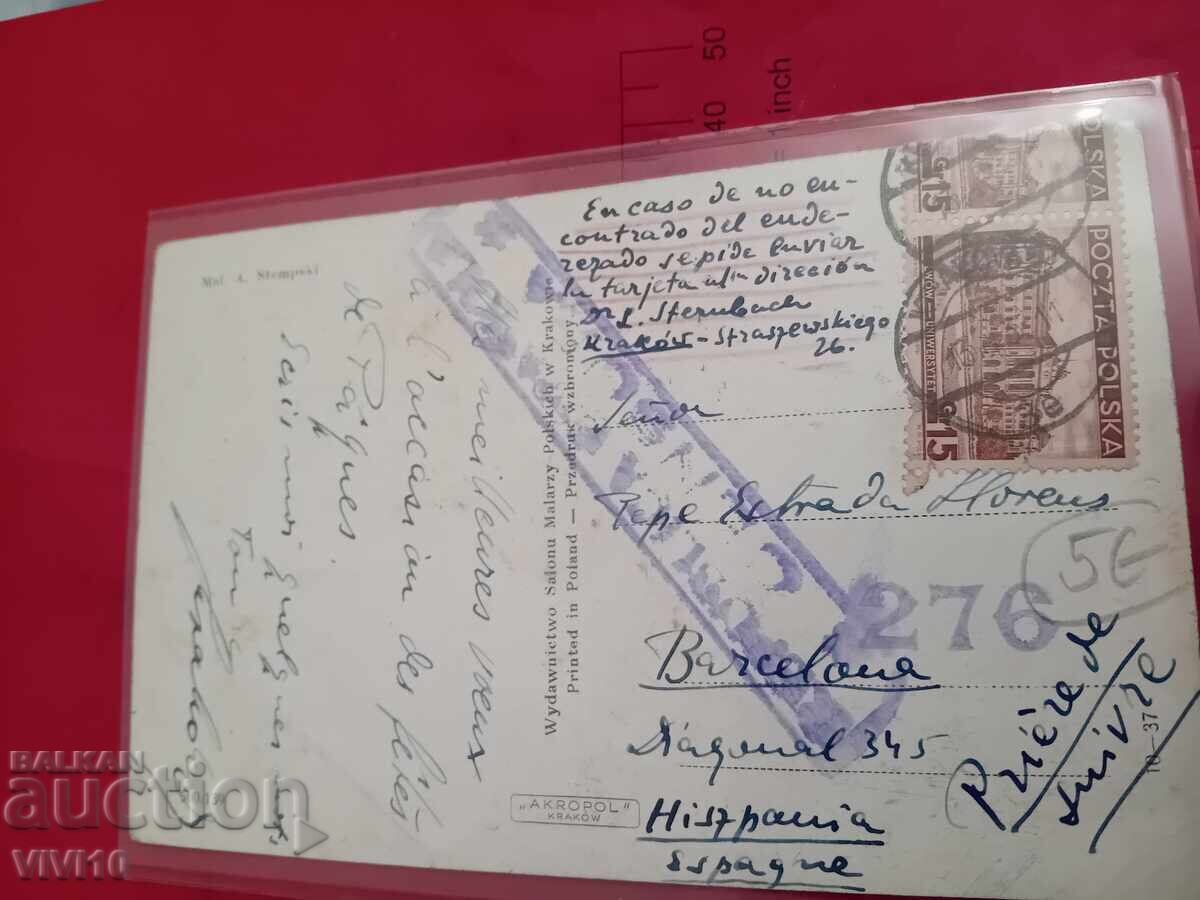 Mal. A. Stempski
Les meilleures voeux
à l'occasion des fêtes
de Pâques.
Ecris moi quelques mots
Wydawnictwo Salonu Malarzy Polskich w Krakowie
Printed in Poland — Przedruk wzbroniony.
"AKROPOL"
KRAKÓW
En caso de no en-
contrado del ende-
rezado se pide enviar
la tarjeta dirección
Dr L. Sternbach
Kraków - Straszewskiego
26.
Señor
Pepe Estrada Llorens
Barcelona
Diagonal 345
Hiszpania
Espagne
Prière de
suivre
10—37
276
5€
POLSKA
G 15
POCZTA POLSKA
LWÓW — UNIWERSYTET
GR 15
50
40
= 1 inch
BALKAN
auction
VIVI10